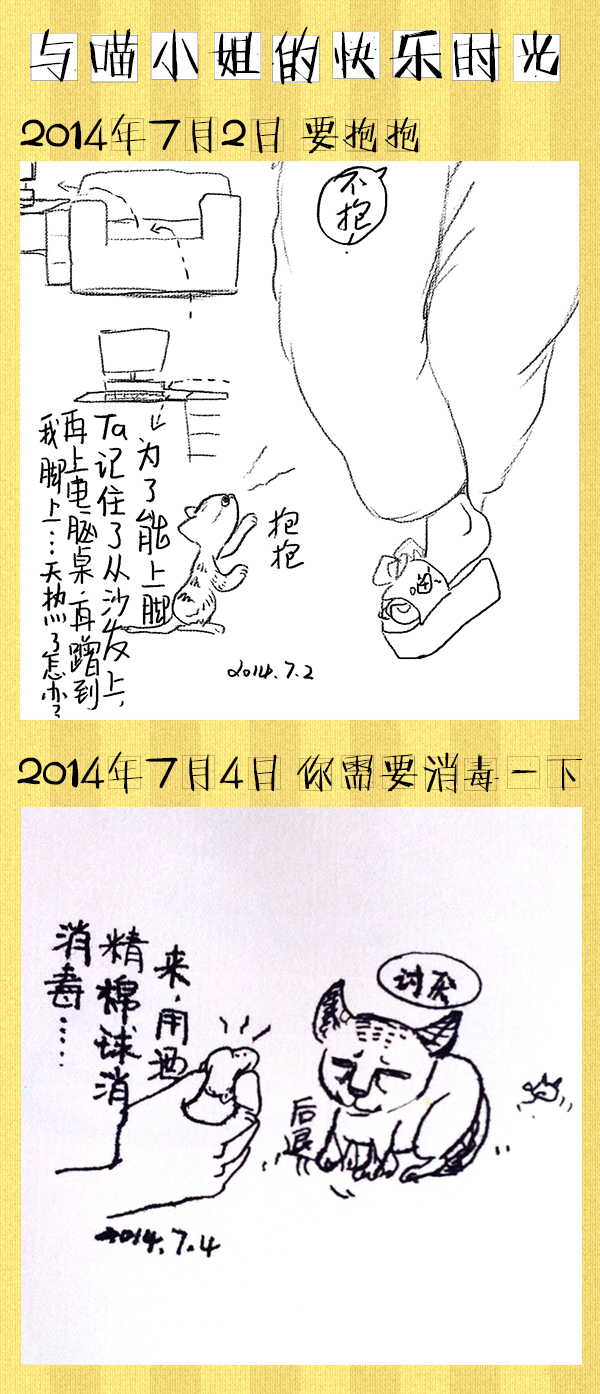 与喵小姐的快乐时光
2014年7月2日 要抱抱
不抱!
为了能上脚
Ta记住了从沙发上,
再上电脑桌,再蹭到
我脚上…天热了怎办?
抱抱
喵~
2014.7.2
2014年7月4日 你需要消毒一下
来,用酒
精棉球消
消毒……
讨厌
后退
2014.7.4